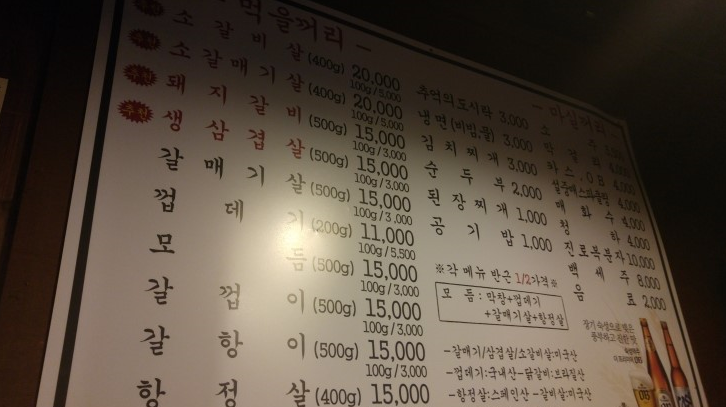 먹을꺼리 -
소갈비살 (400g) 20,000
100g / 5,000
소갈매기살 (400g) 20,000
100g / 5,000
돼지갈비 (500g) 15,000
100g / 3,000
생삼겹살 (500g) 15,000
100g / 3,000
갈매기살 (500g) 15,000
100g / 3,000
껍데기 (200g) 11,000
100g / 5,500
모듬 (500g) 15,000
100g / 3,000
갈껍이 (500g) 15,000
100g / 3,000
갈항이 (500g) 15,000
100g / 3,000
항정살 (400g) 15,000
추억의도시락 3,000
냉면 (비빔,물) 3,000
김치찌개 3,000
순두부 2,000
된장찌개 1,000
공기밥 1,000
※각 메뉴 반근 1/2가격※
모듬 : 막창+껍데기
+갈매기살+항정살
-갈매기/삼겹살/소갈비살:미국산
-껍데기:국내산-닭갈비:브라질산
-항정살:스페인산 -갈비살:미국산
- 마실꺼리 -
소주
막걸리
카스.OB 4,000
설중매스파클링 4,000
매화수 4,000
청하 4,000
진로복분자 10,000
백세주 8,000
음료 2,000